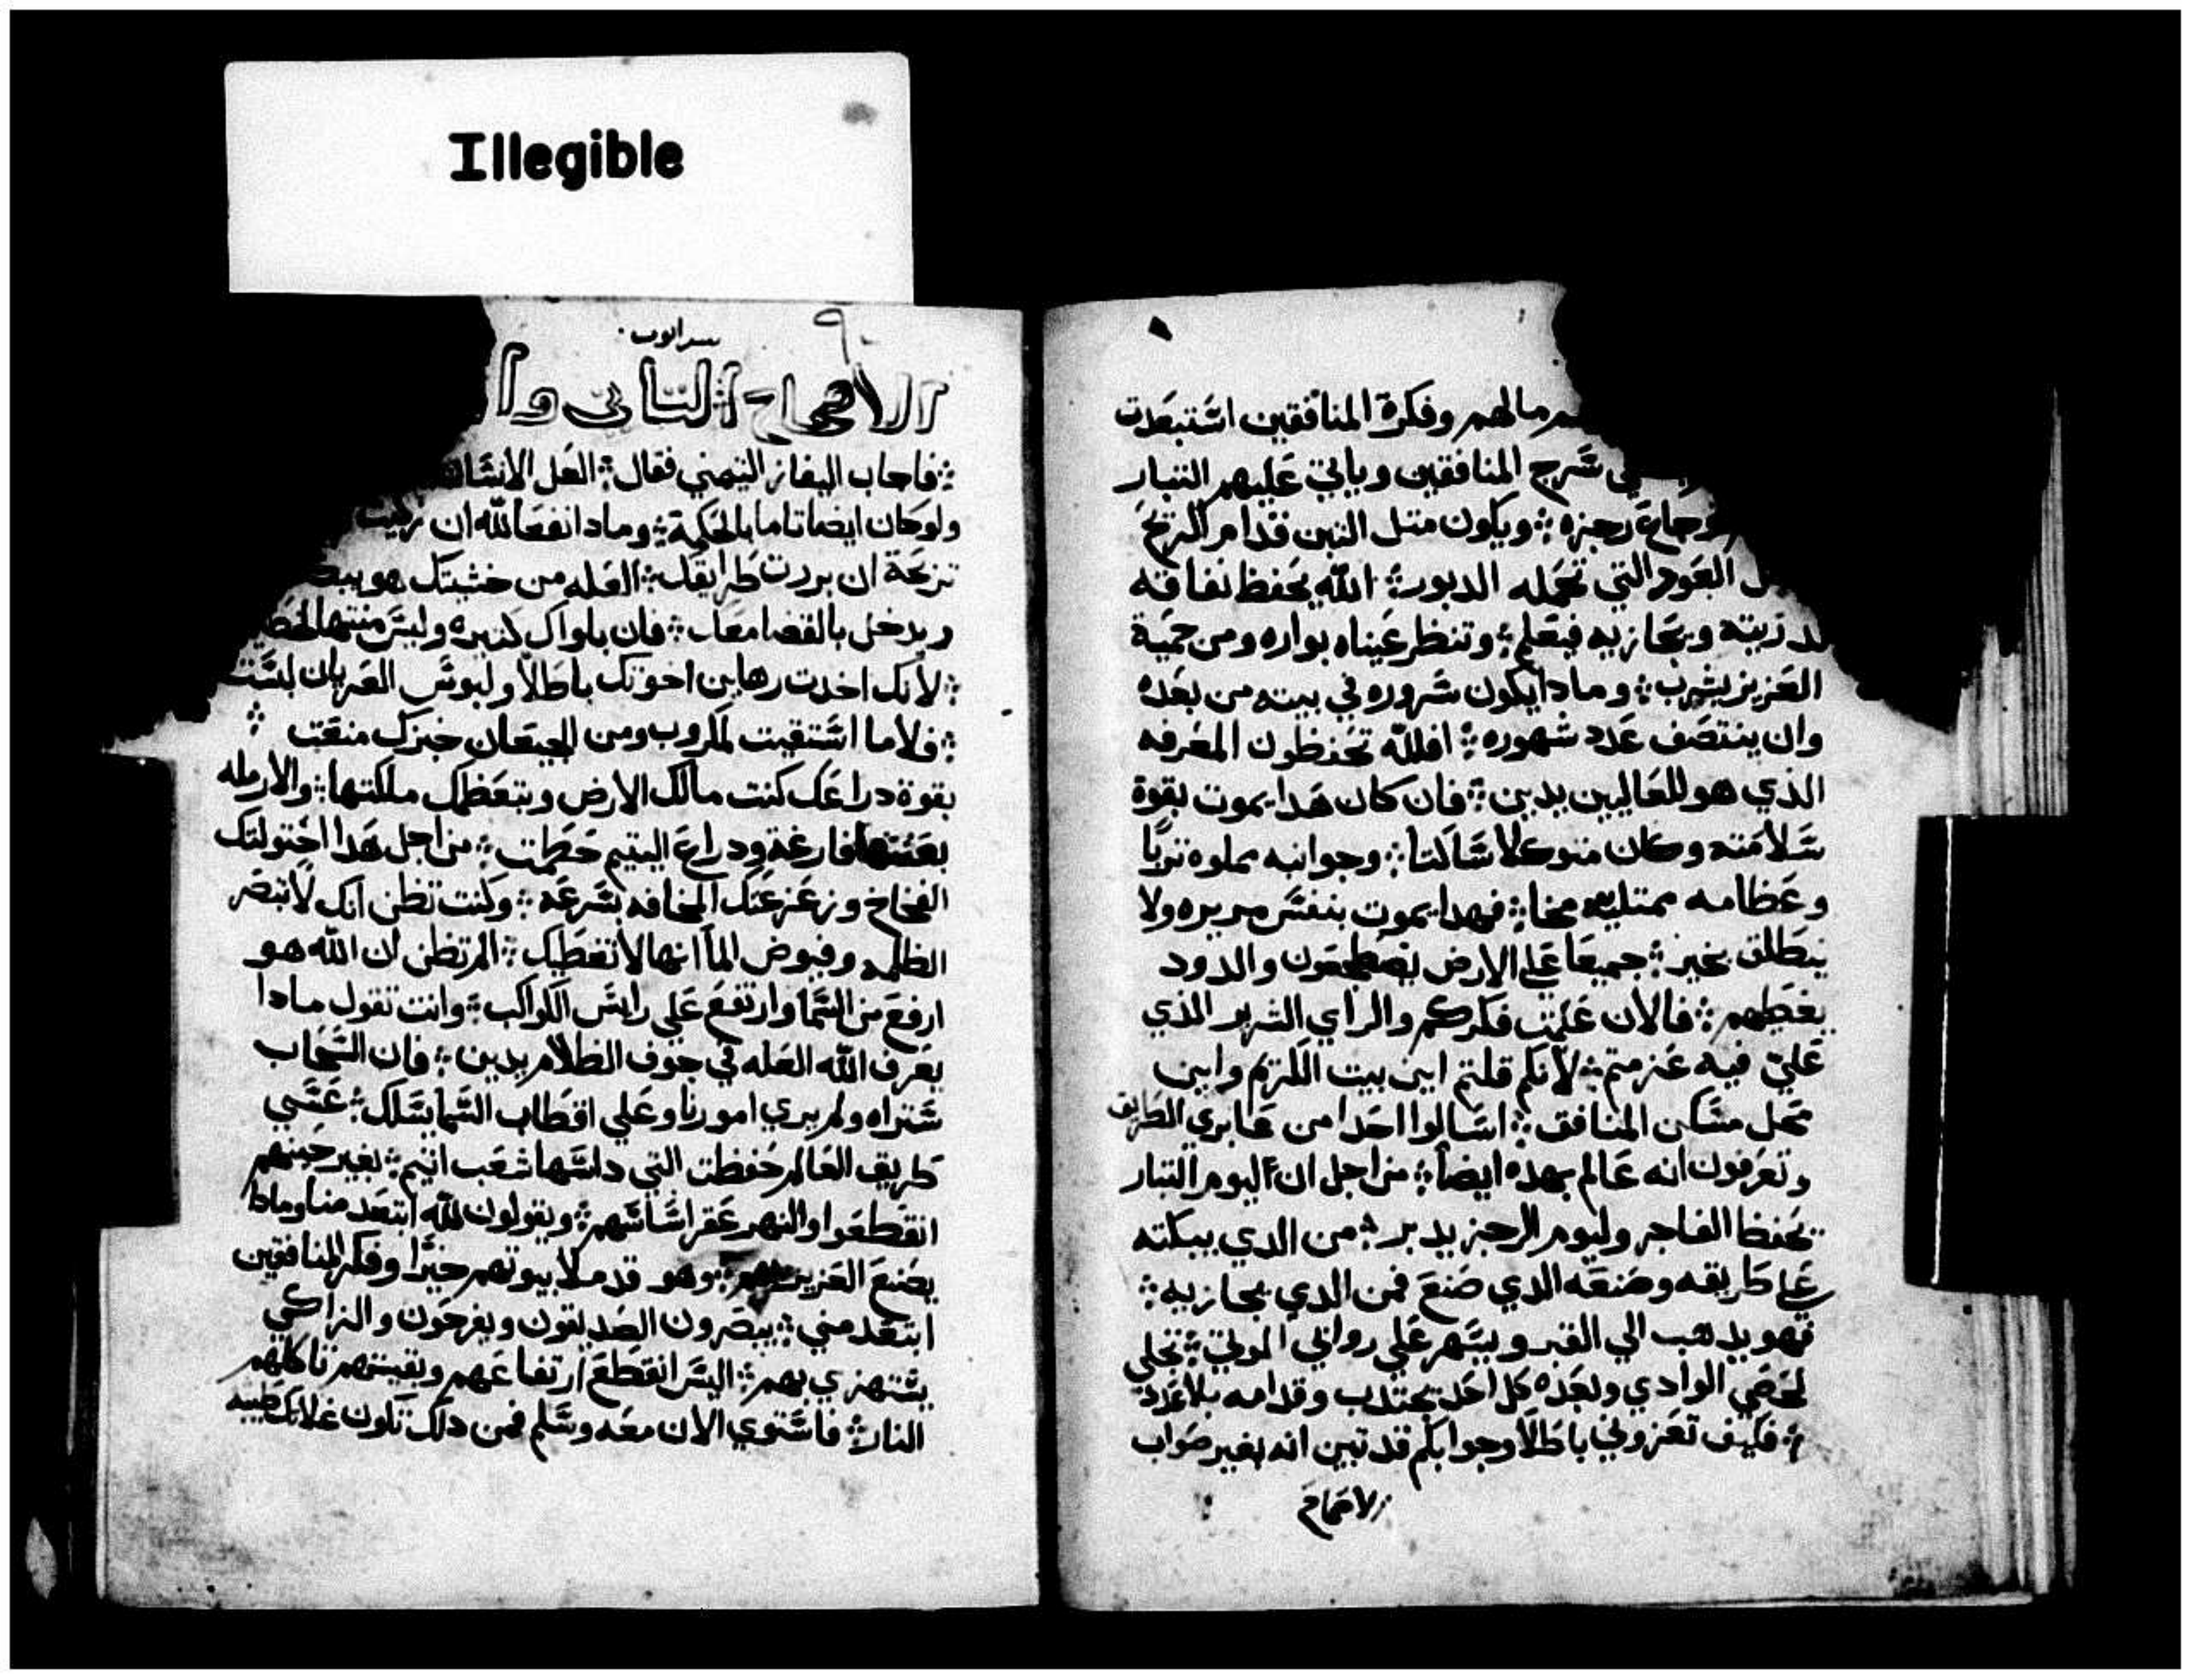 Illegible
مالهم وفكرة المنافقين استبعدت
سرج المنافقين وياتي عليهم التبار
رجزه ܀ ويكون متل التبن قدام الريح
العود التي تحمله الدبور ܀ الله يحفظ نفاقه
ويجازيه فيعلم ܀ وتنظر عيناه بواره ومن حمية
العزيز يشرب ܀ ومادا يكون سروره في بيته من بعده
وان ينتصف عدد شهوره ܀ افلله تحفظون المعرفه
الذي هو للعاليين يدين ܀ فان كان هدا يموت بقوة
سلامته وكان متوكلا ساكتا ܀ وجوانبه مملوه تربا
وعظامه ممتليه مخا ܀ فهدا يموت بنفس مريره ولا
ينطلق بخير ܀ جميعا علي الارض يضطجعون والدود
يغطيهم ܀ فالان علمت فكركم والراي الشرير الذي
علي فيه عزمتم ܀ لانكم قلتم اين بيت الكريم واين
محل مسكن المنافق ܀ اسالوا احدا من عابري الطريق
وتعرفون انه عالم بهده ايضا ܀ من اجل ان اليوم التبار
يحفظ الفاجر وليوم الرجز يدبر ܀ من الدي يبكته
علي طريقه وصنعه الدي صنع فمن الدي يجازيه ܀
فهو يدهب الي القبر ويسهر علي روابي الموتي ܀ تحلي
لحصي الوادي وبعده كل احد يجتدب وقدامه بلا عدد
܀ فكيف تعزوني باطلا وجوابكم قد تبين انه بغير صواب
الاصحاح
سر ايوب
الاصحاح التاني وا
܀ فاجاب اليفاز التيمني فقال ܀ العل الانسان
ولو كان ايضا تاما بالحكمة ܀ ومادا انفع لله ان
تزكة ان بررت طرايقك ܀ العله من خشيتك هو
ويدخل بالقضا معك ܀ فان بلواك كتيره وليس منتها
܀ لانك اخدت رهاين اخوتك باطلا ولبوس العريان
܀ فلا ما استقيت لمكروب ومن الجيعان خبزك منعت ܀
بقوة دراعك كنت مالك الارض وبتعظمك ملكتها ܀ والارمله
بعتتها فارغة ودراع اليتيم حطمت ܀ من اجل هدا احتولتك
الفخاخ وزعزعتك المخافه بسرعه ܀ وكنت تظن انك لا تبصر
الظلمه وفيوض الما انها لا تغطيك ܀ الم تظن ان الله هو
ارفع من السما وارتفع علي رايس الكواكب ܀ وانت تقول مادا
يعرف الله العله في جوف الظلام يدين ܀ فان السحاب
ستراه ولم يري امورنا وعلي اقطاب السما يسلك ܀ عسي
طريق العالم حفظت التي داسها شعب اتيم ܀ بغير حينهم
انقطعوا والنهر عقر اساسهم ܀ ويقولون لله ابتعد منا ومادا
يصنع العزيز ܀ وهو قد ملا بيوتهم خيرا وفكر المنافقين
ابتعد مني ܀ يبصرون الصديقون ويفرحون والزاكي
يستهزي بهم ܀ اليس انقطع ارتفاعهم وبقيتهم تاكلهم
النار ܀ فاستوي الان معه وسلم فمن دلك تكون غلاتك طيبه